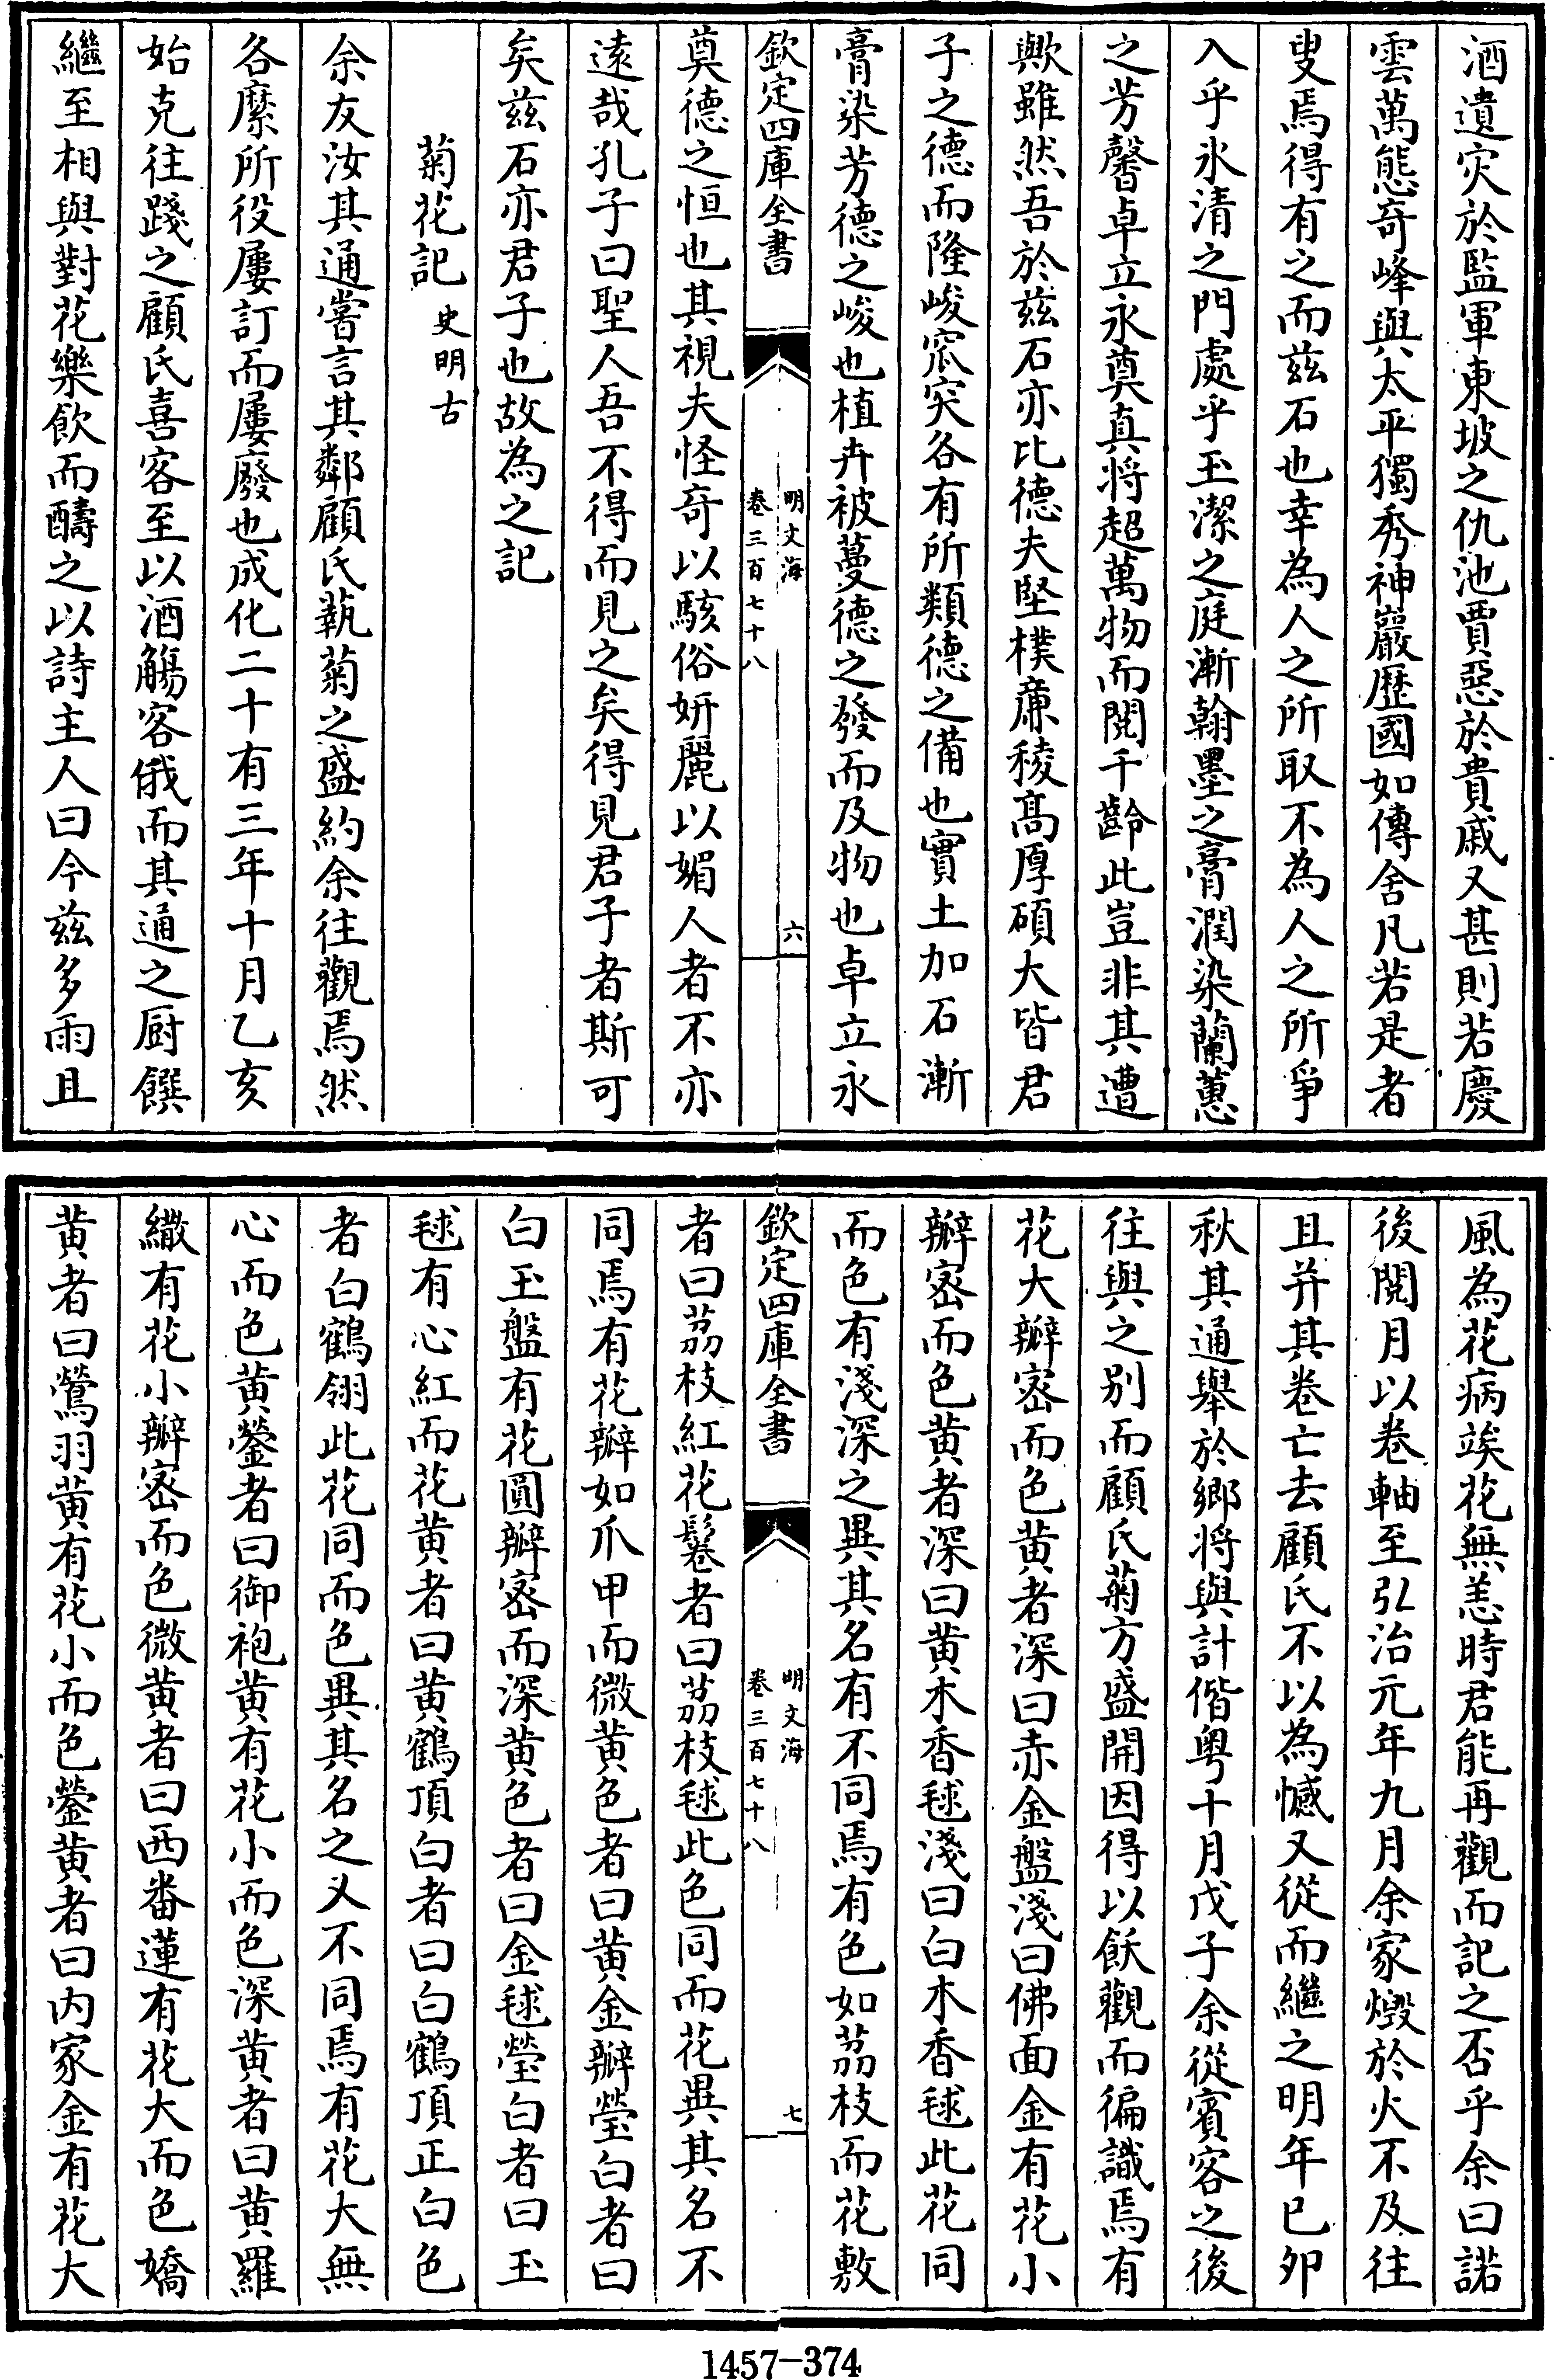 酒遺灾於監軍東坡之仇池賈惡於貴戚又甚則若慶
雲萬態竒峰與太平獨秀神巖歴國如傳舍凡若是者
叟焉得有之而兹石也幸為人之所取不為人之所爭
入乎氷清之門處乎玉潔之庭漸翰墨之膏潤染蘭蕙
之芳馨卓立永奠真将超萬物而閲千齡此豈非其遭
歟雖然吾於兹石亦比德夫堅樸亷稜髙厚碩大皆君
子之德而隆峻窊突各有所類德之備也實土加石漸
膏染芳德之峻也植卉被蔓德之發而及物也卓立永
欽定四庫全書
明文海
卷三百七十八
六
奠德之恒也其視夫怪竒以駭俗妍麗以媚人者不亦
遠哉孔子曰聖人吾不得而見之矣得見君子者斯可
矣兹石亦君子也故為之記
菊花記 史明古
余友汝其通嘗言其鄰顧氏蓺菊之盛約余往觀焉然
各縻所役屢訂而屢廢也成化二十有三年十月乙亥
始克往踐之顧氏喜客至以酒觴客俄而其通之厨饌
繼至相與對花樂飲而醻之以詩主人曰今兹多雨且
風為花病竢花無恙時君能再觀而記之否乎余曰諾
後閲月以卷軸至弘治元年九月余家燬於火不及往
且并其卷亡去顧氏不以為憾又從而繼之明年已夘
秋其通舉於鄉将與計偕粤十月戊子余從賓客之後
往與之别而顧氏菊方盛開因得以飫觀而徧識焉有
花大瓣宻而色黄者深曰赤金盤淺曰佛面金有花小
瓣宻而色黄者深曰黄木香毬淺曰白木香毬此花同
而色有淺深之異其名有不同焉有色如茘枝而花敷
欽定四庫全書
明文海
卷三百七十八
七
者曰茘枝紅花鬈者曰茘枝毬此色同而花異其名不
同焉有花瓣如爪甲而微黄色者曰黄金瓣瑩白者曰
白玉盤有花圓瓣宻而深黄色者曰金毬瑩白者曰玉
毬有心紅而花黄者曰黄鶴頂白者曰白鶴頂正白色
者白鶴翎此花同而色異其名之又不同焉有花大無
心而色黄鎣者曰御袍黄有花小而色深黄者曰黄羅
繖有花小瓣宻而色微黄者曰西番蓮有花大而色嬌
黄者曰鶯羽黄有花小而色鎣黄者曰内家金有花大
1457-374